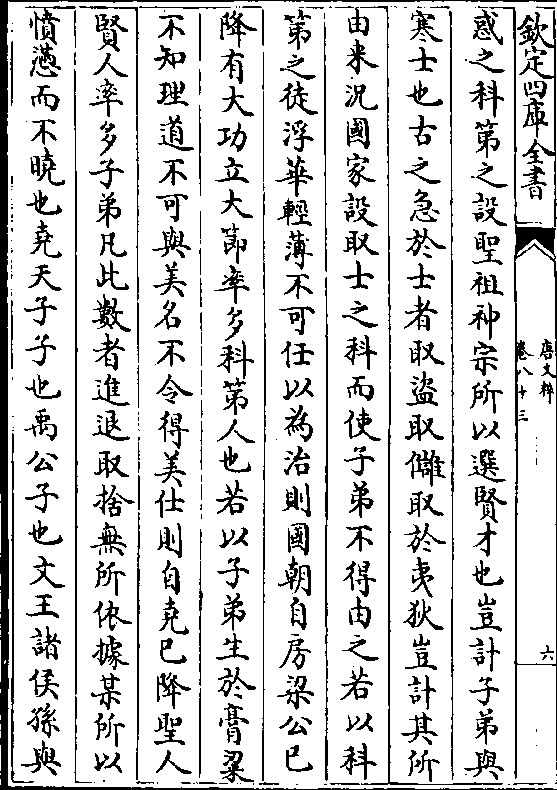 欽定四庫全書
唐文粹
卷八十三
六
惑之科第之設聖祖神宗所以選賢才也豈計子弟與
寒士也古之急於士者取盜取讎取於夷狄豈計其所
由来況國家設取士之科而使子弟不得由之若以科
第之徒浮華輕薄不可任以為治則國朝自房梁公已
降有大功立大節率多科第人也若以子弟生於膏粱
不知理道不可與美名不令得美仕則自堯已降聖人
賢人率多子弟凡此數者進退取捨無所依據某所以
憤懣而不曉也堯天子子也禹公子也文王諸侯孫與